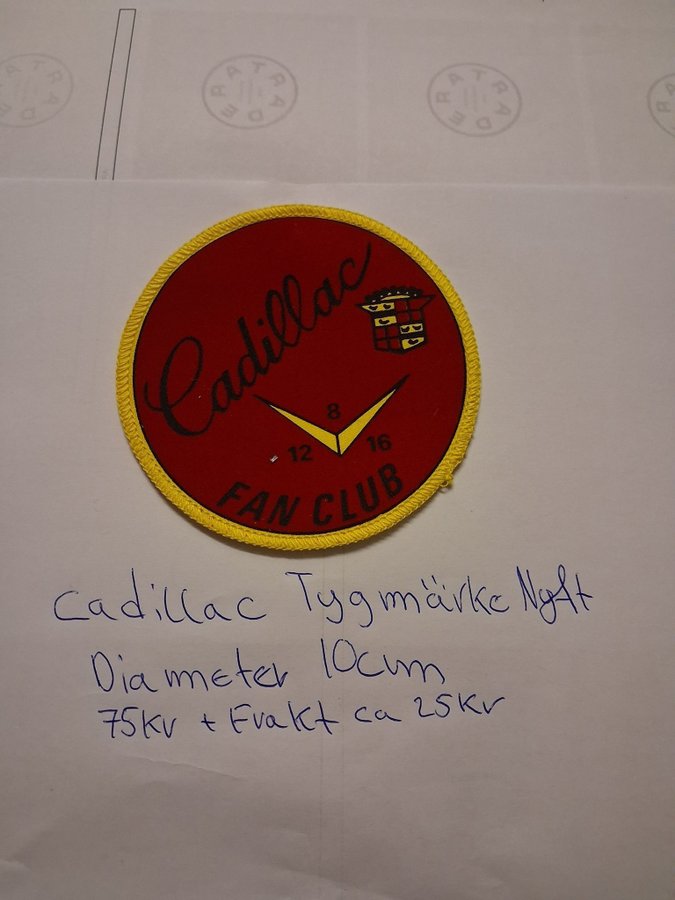 TRADERA
TRADERA
Cadillac
8
12 16
FAN CLUB
Cadillac Tygmärke Nytt
Diameter 10cm
75Kr + Frakt ca 25Kr